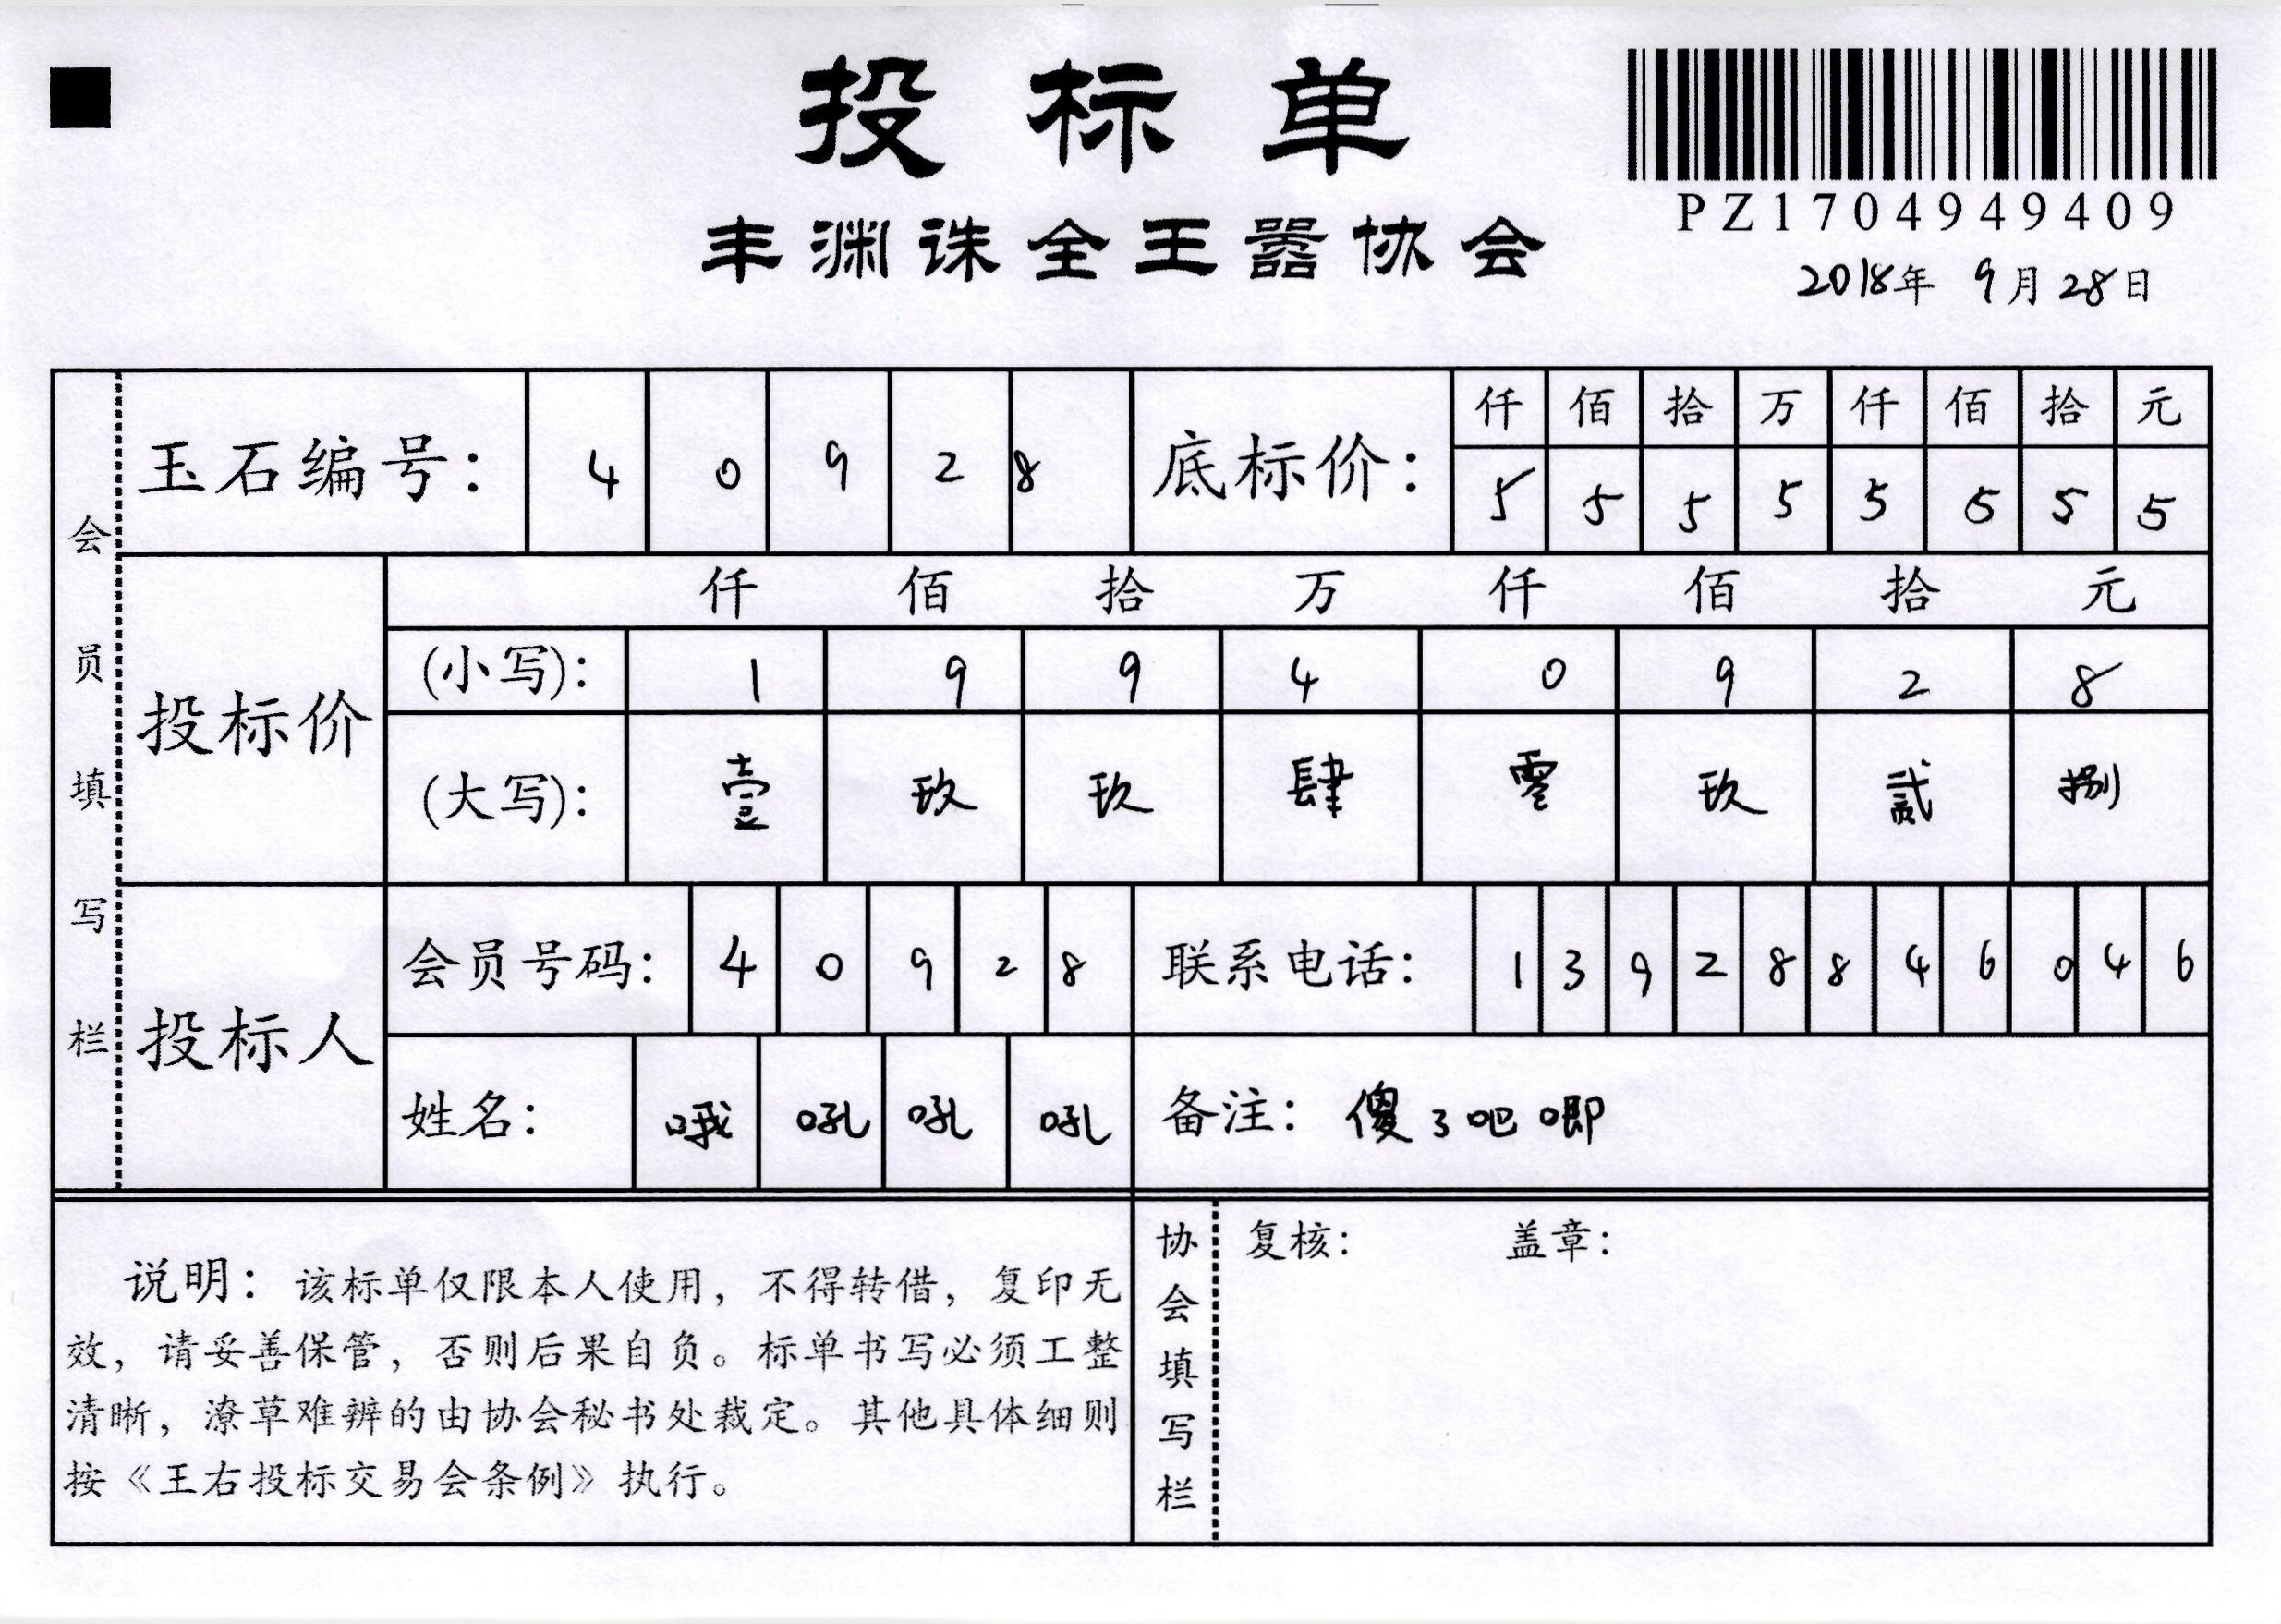 投标单
PZ1704949409
丰渊诛全王嚣协会
2018年 9月28日
会员填写栏
玉石编号： 4 0 9 2 8 底标价： 仟 佰 拾 万 仟 佰 拾 元
5 5 5 5 5 5 5 5
投标价 仟 佰 拾 万 仟 佰 拾 元
(小写)： 1 9 9 4 0 9 2 8
(大写)： 壹 玖 玖 肆 零 玖 贰 捌
投标人 会员号码： 4 0 9 2 8 联系电话： 1 3 9 2 8 8 4 6 0 4 6
姓名： 哦 吼 吼 吼 备注： 傻了吧唧
说明：该标单仅限本人使用，不得转借，复印无
效，请妥善保管，否则后果自负。标单书写必须工整
清晰，潦草难辨的由协会秘书处裁定。其他具体细则
按《王右投标交易会条例》执行。
协会填写栏
复核： 盖章：